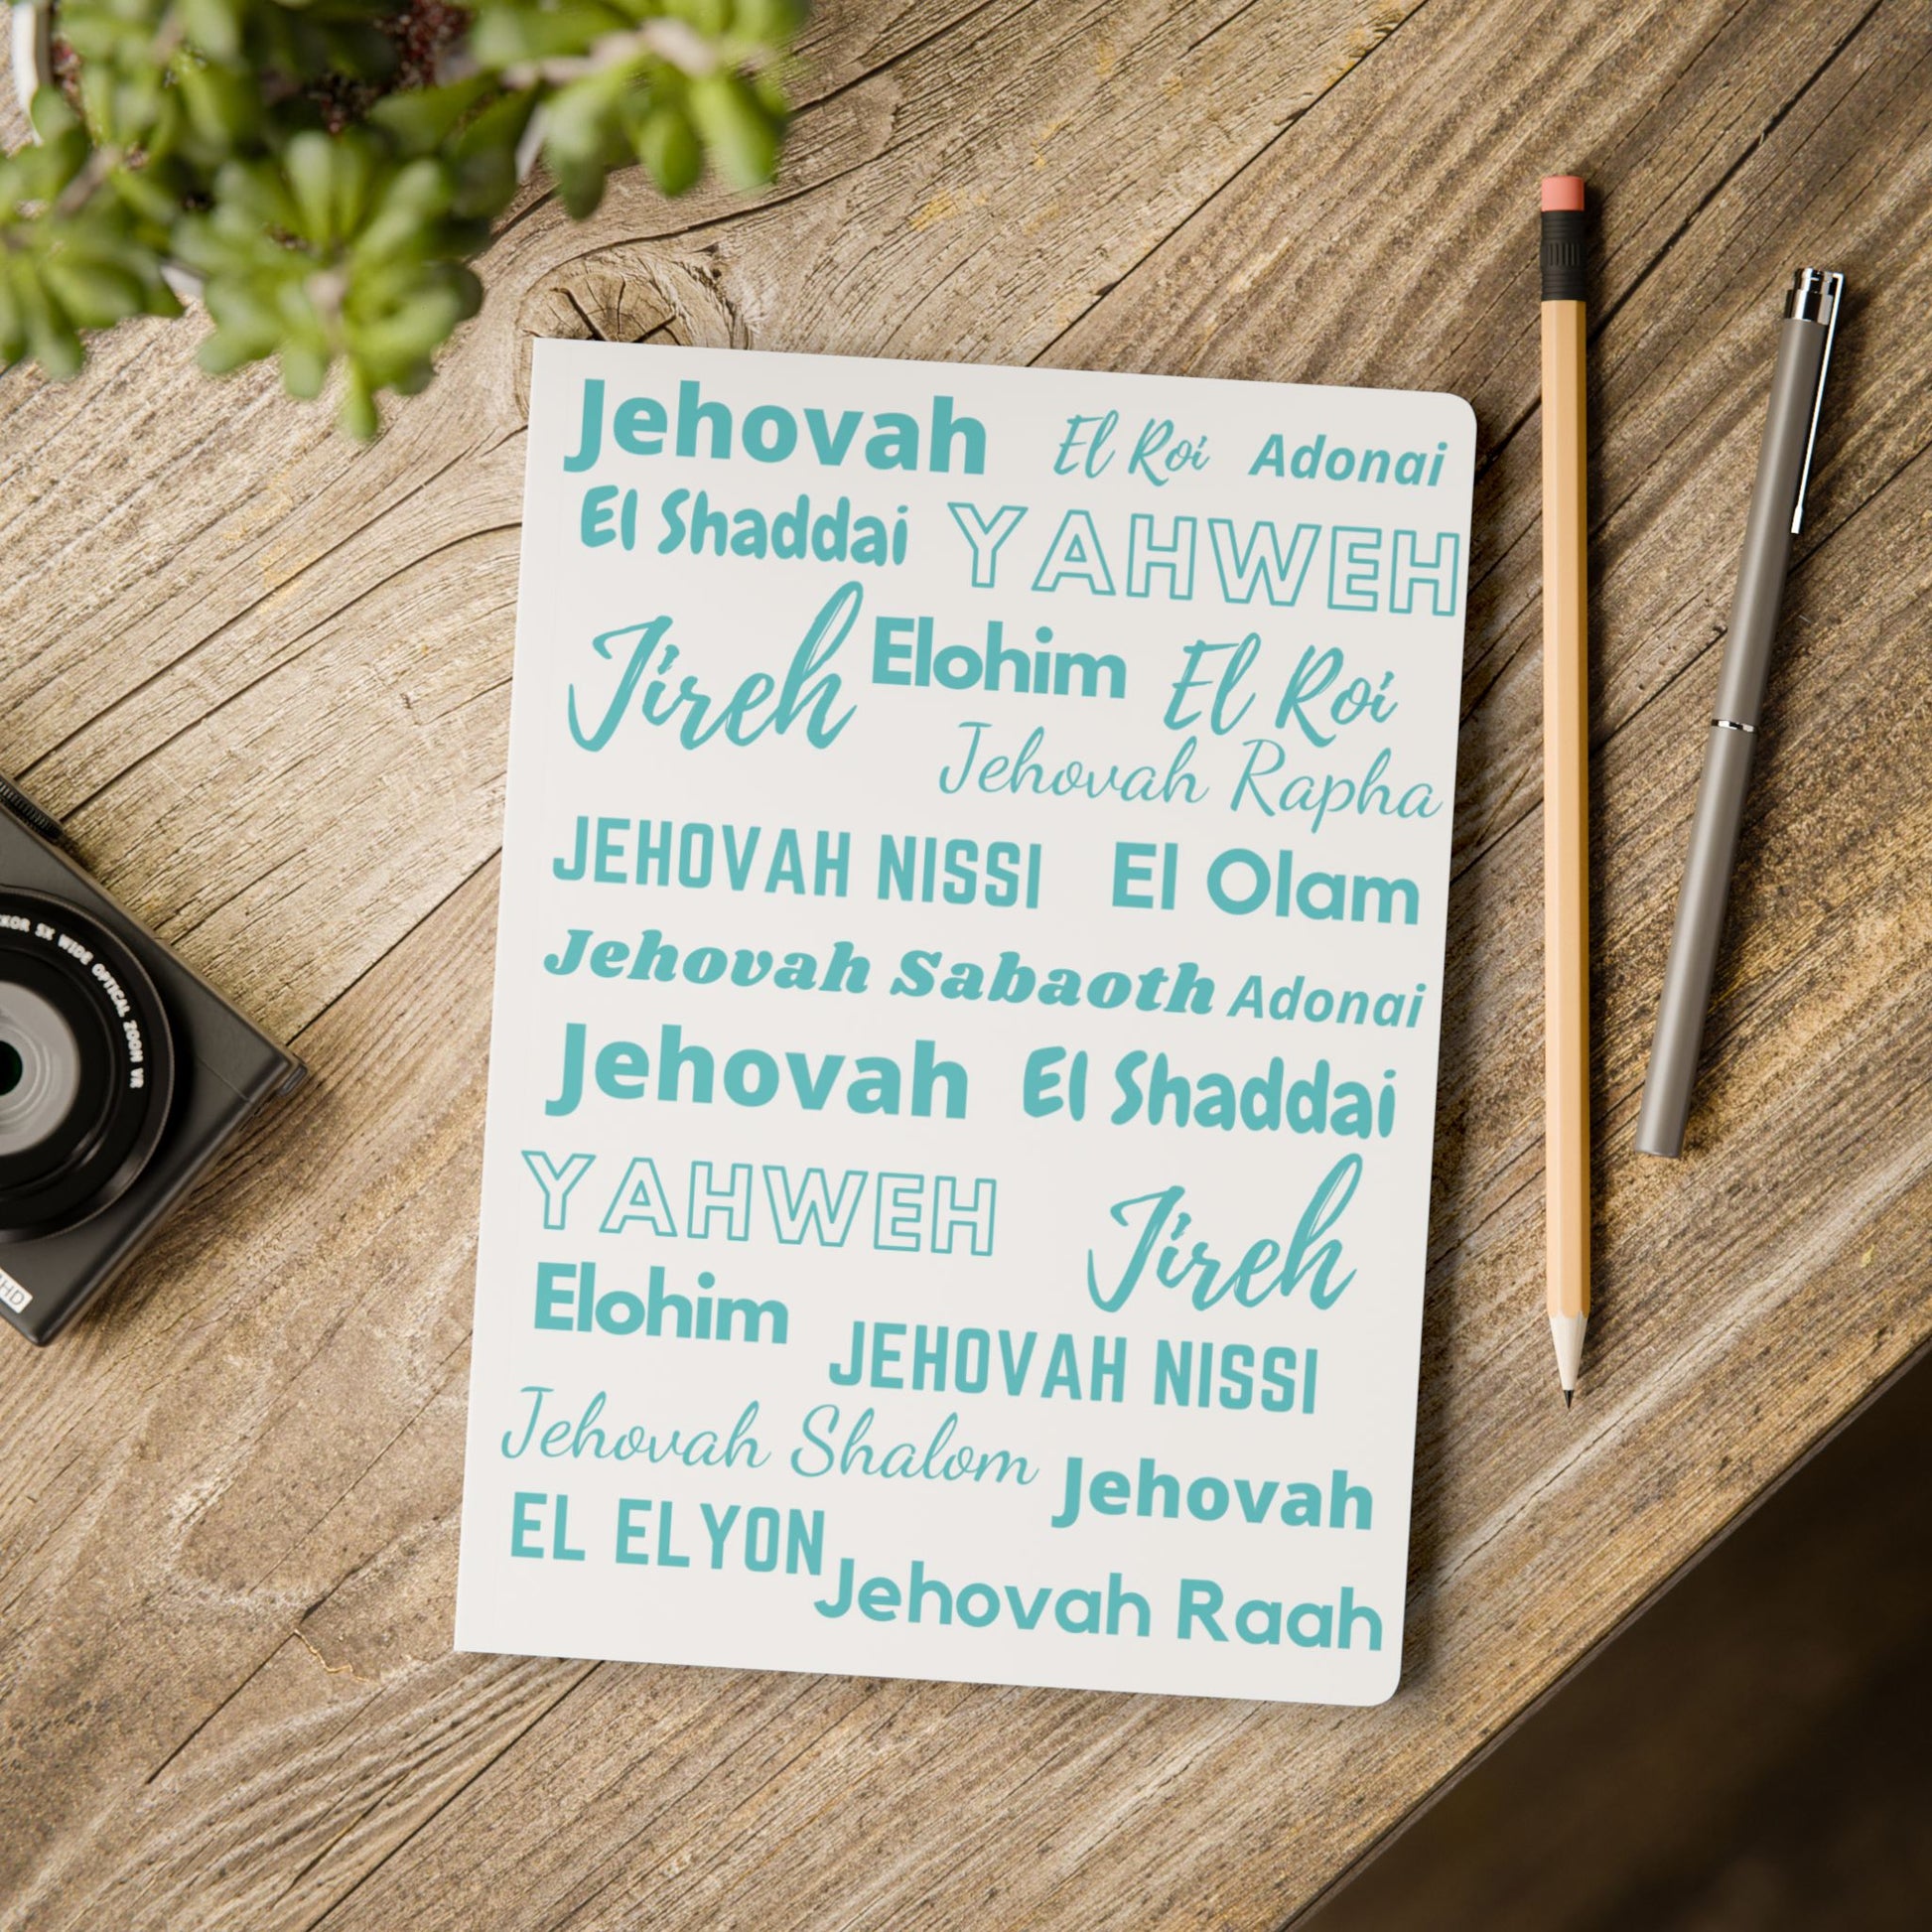 Jehovah El Roi Adonai
El Shaddai YAHWEH
Jireh Elohim El Roi
Jehovah Rapha
JEHOVAH NISSI El Olam
Jehovah Sabaoth Adonai
Jehovah El Shaddai
YAHWEH Jireh
Elohim JEHOVAH NISSI
Jehovah Shalom Jehovah
EL ELYON Jehovah Raah
KOR 5X WIDE OPTICAL ZOOM VR
HD